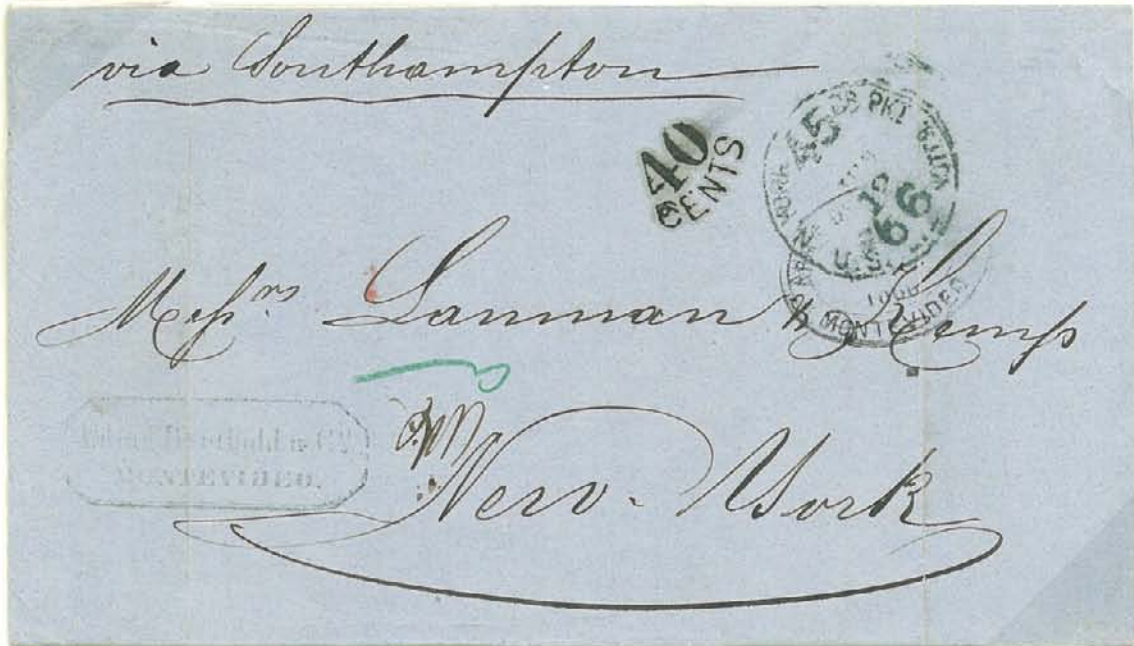 via Southampton
40
CENTS
N. YORK BR. PKT.
45
12
U.S. 66
MONTEVIDEO
Messrs Lanman & Kemp
New-York
MONTEVIDEO.